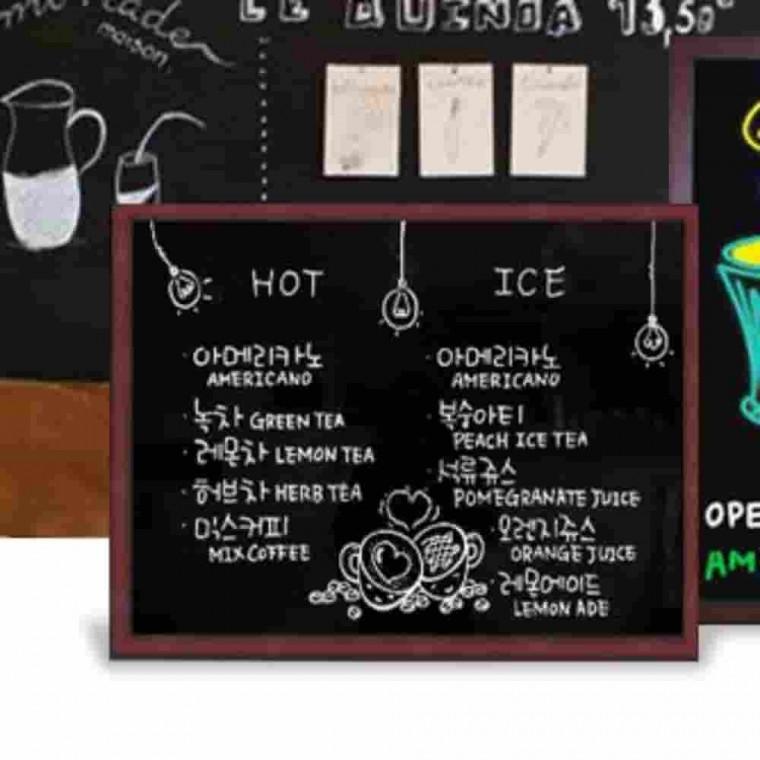 LE QUINOA 13,50
maison,
HOT
ICE
아메리카노
AMERICANO
녹차 GREEN TEA
레몬차 LEMON TEA
허브차 HERB TEA
믹스커피
MIX COFFEE
아메리카노
AMERICANO
복숭아티
PEACH ICE TEA
석류쥬스
POMEGRANATE JUICE
오렌지쥬스
ORANGE JUICE
레몬에이드
LEMON ADE
OPE
AM